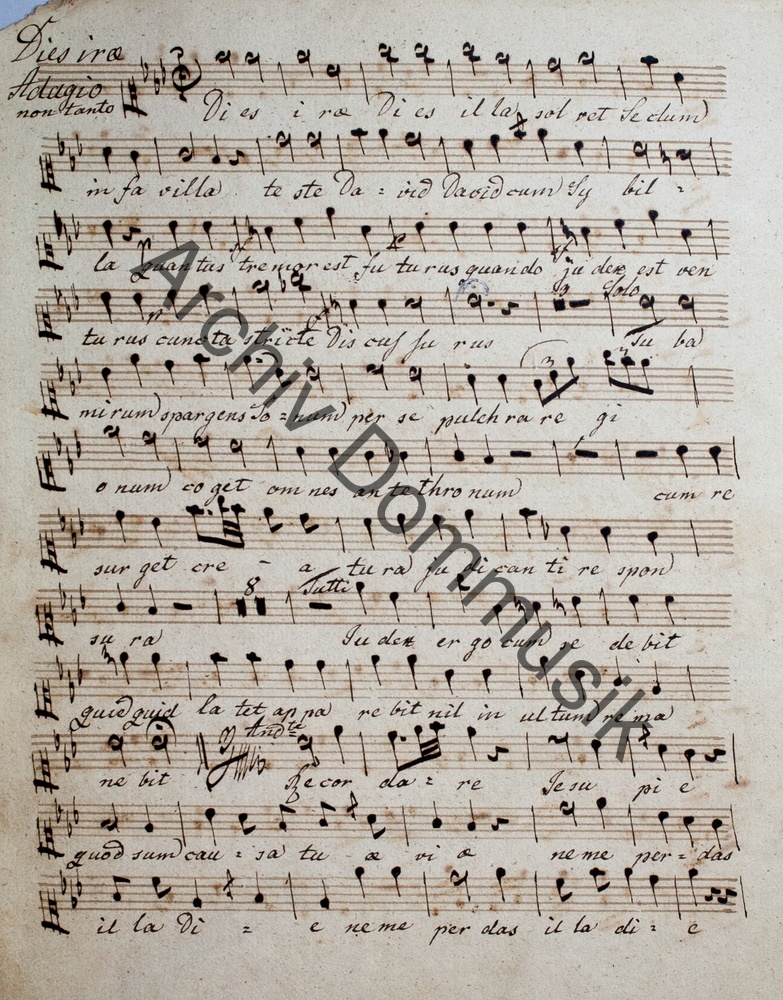 Dies iræ
Adagio
non tanto
Di es i ræ Di es il la sol vet Se clum
in fa villa te ste Da = vid David cum Sy bil =
la quan tus tremor est fu tu rus quando ju dex est ven
Solo
tu rus cuncta stricte Dis cus su rus Tu ba
3 3
mi rum spargens So = num per se pulch ra re gi
o num co get om nes an te thro num cum re
sur get cre - a tu ra ju di can ti re spon
8 Tutti
su ra Ju dex er go cum se de bit
quid quid la tet ap pa re bit nil in ul tum re ma
And.te
ne bit Recor da = re Jesu pi e
quod sum cau = sa tu æ vi æ ne me per = das
il la Di = e ne me per das il la di = e
Archiv Dommusik